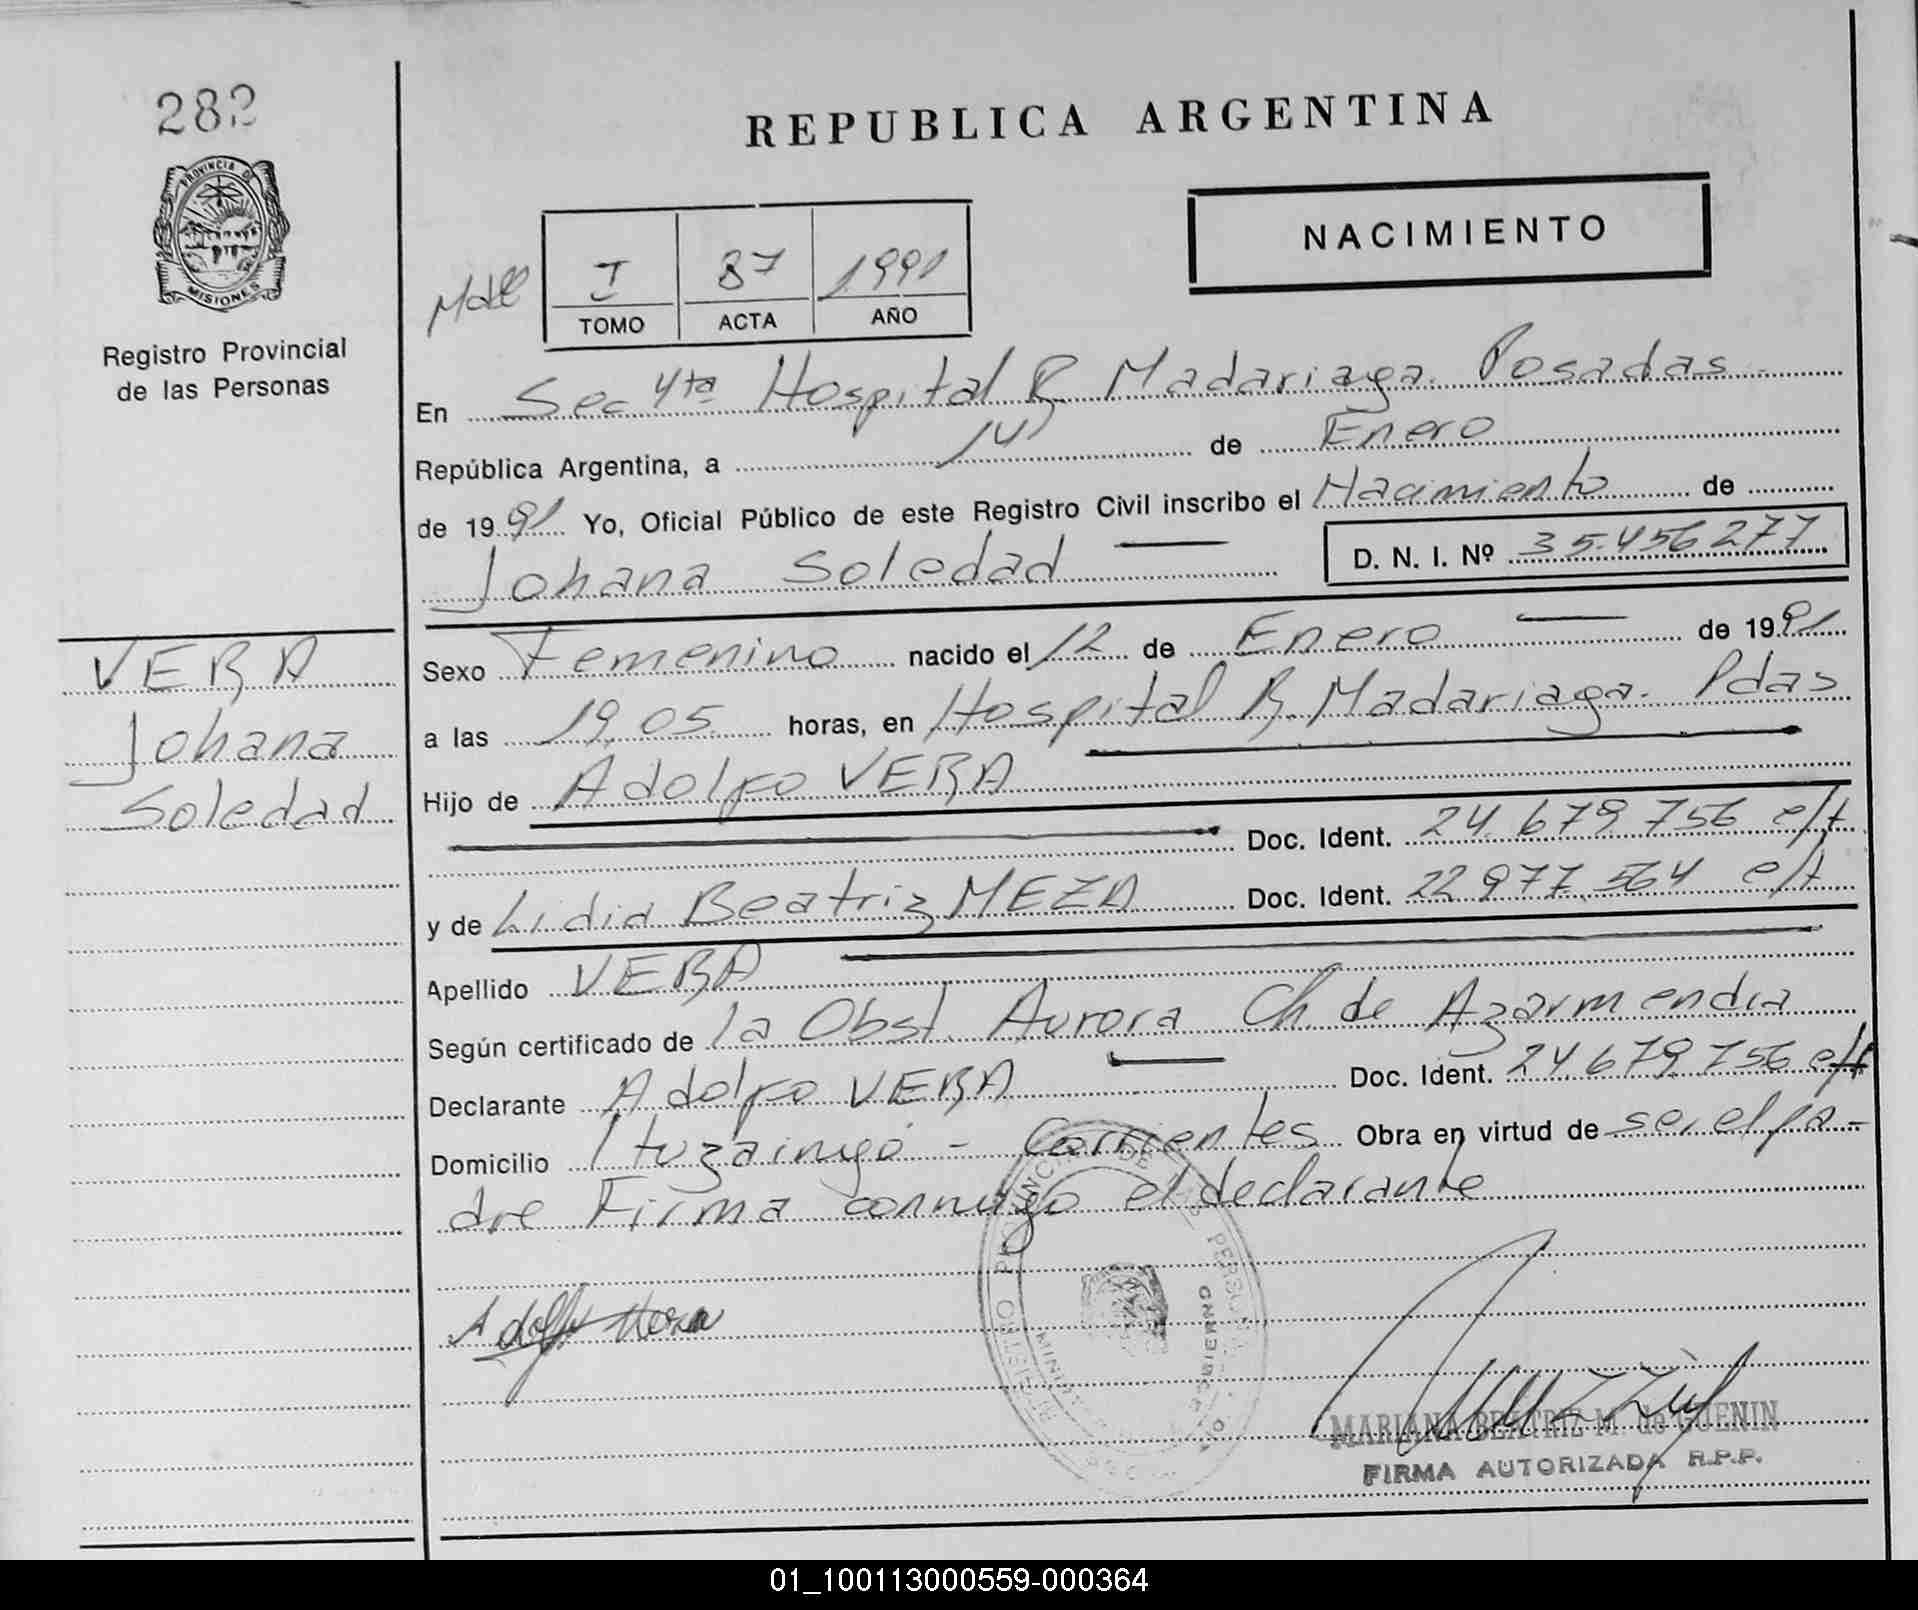 282
PROVINCIA DE
MISIONES
Registro Provincial
de las Personas
REPUBLICA ARGENTINA
NACIMIENTO
I 87 1991
TOMO ACTA AÑO
En Sec 4ta Hospital R. Madariaga. Posadas
República Argentina, a 14 de Enero
de 1991 Yo, Oficial Público de este Registro Civil inscribo el Nacimiento de
Johana Soledad D. N. I. Nº 35.456277
VERA
Johana
Soledad
Sexo Femenino nacido el 12 de Enero de 1991
a las 19,05 horas, en Hospital R. Madariaga. Pdas
Hijo de Adolfo VERA
Doc. Ident. 24.679.756 e/t
y de Lidia Beatriz MEZA Doc. Ident. 22.977.564 e/t
Apellido VERA
Según certificado de la Obst. Aurora Ch. de Azarmendia
Declarante Adolfo VERA Doc. Ident. 24.679.756 e/t
Domicilio Ituzaingó - Corrientes Obra en virtud de ser el pa-
dre Firma conmigo el declarante
MARIANA BEATRIZ M. de GUENIN
FIRMA AUTORIZADA R.P.P.
01_100113000559-000364